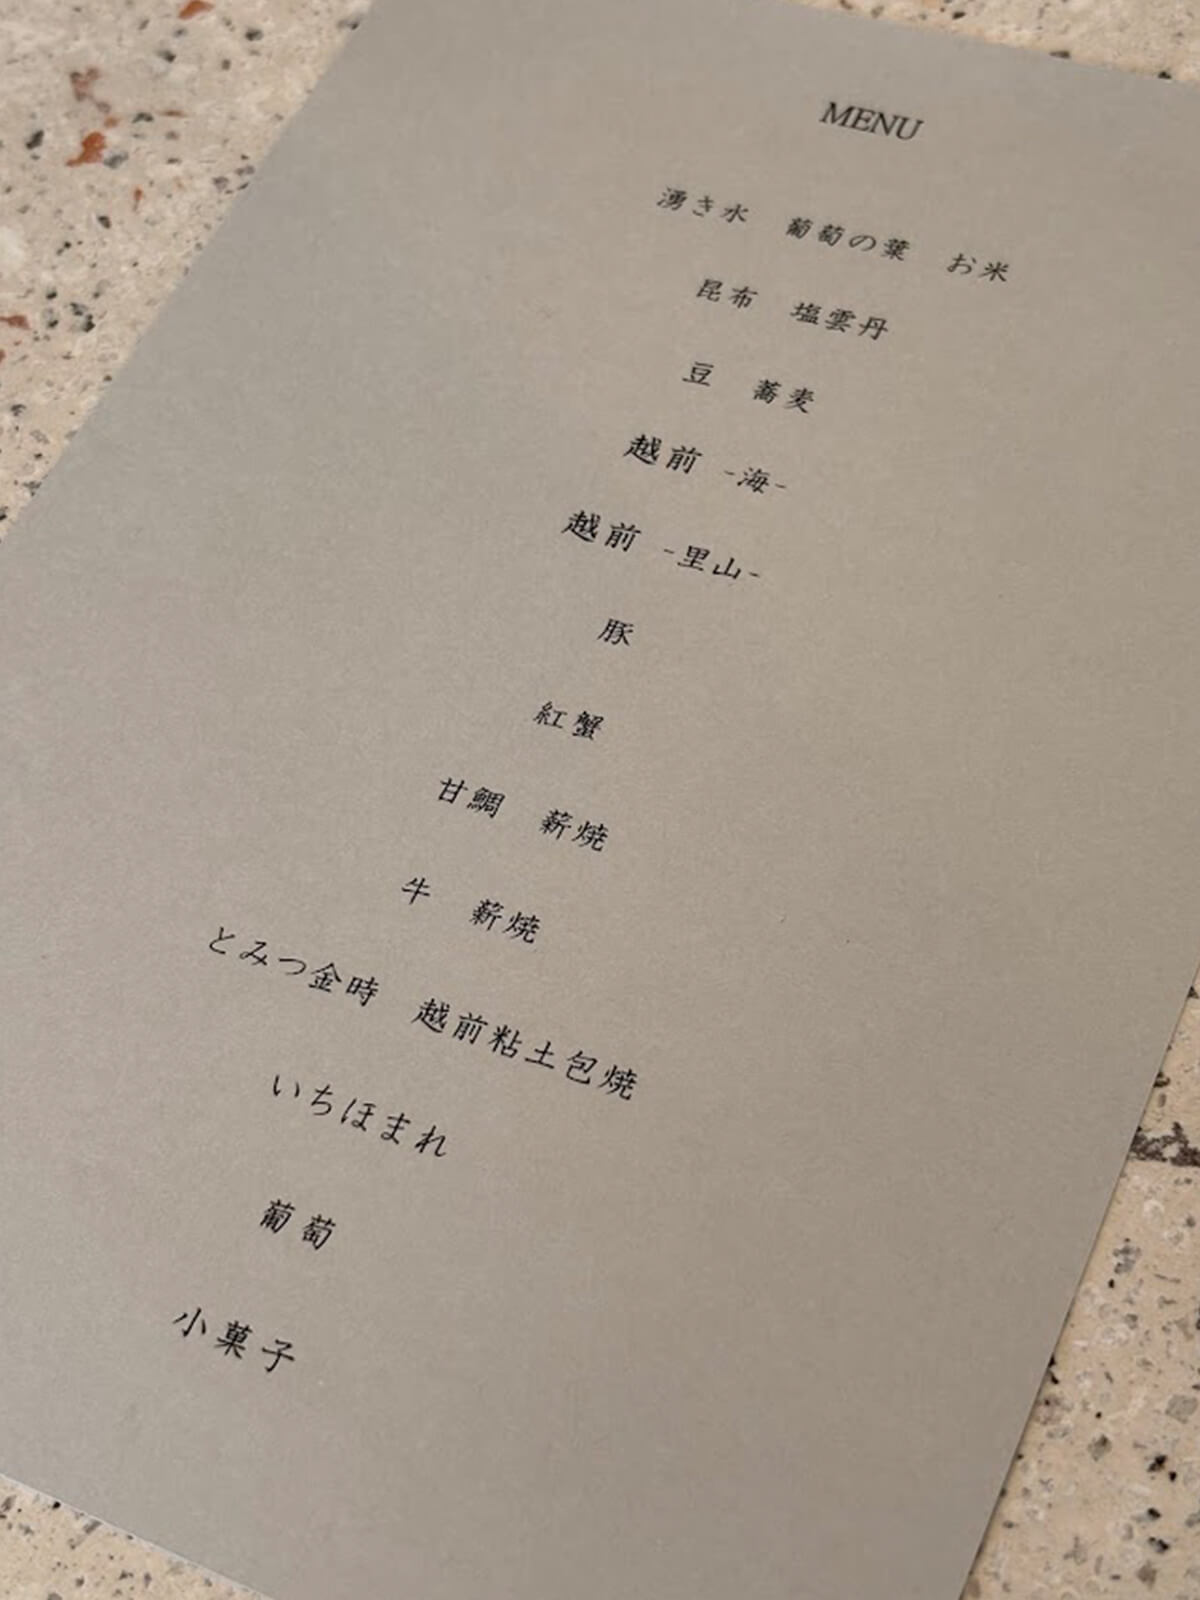 MENU
湧き水　葡萄の葉　お米
昆布　塩雲丹
豆　蕎麦
越前 -海-
越前 -里山-
豚
紅蟹
甘鯛　薪焼
牛　薪焼
とみつ金時　越前粘土包焼
いちほまれ
葡萄
小菓子